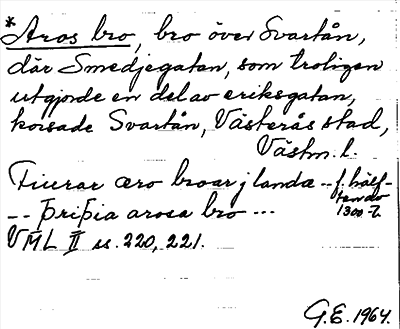 * Aros bro, bro över Svartån,
där Smedjegatan, som troligen
utgjorde en del av eriksgatan,
korsade Svartån, Västerås stad,
Västm. l.
Fiurar æro broar j landæ -- f. hälf-
ten av
-- þriþia arosa bro --- 1300-t.
VML II ss. 220, 221.
G.E. 1964.